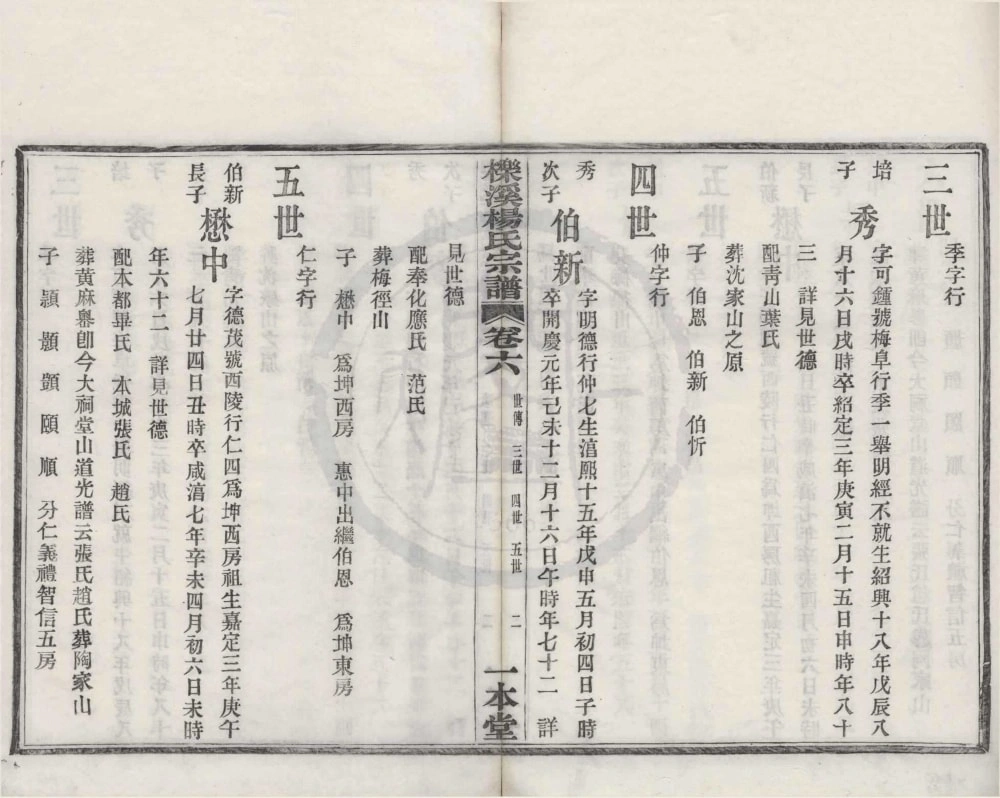 三世
季字行
培
子
秀
字可鍾號梅阜行季一舉明經不就生紹興十八年戊辰八
月十六日戌時卒紹定三年庚寅二月十五日申時年八十
三　詳見世德
配靑山葉氏
葬沈家山之原
子　伯恩　伯新　伯忻
四世
仲字行
秀
次子
伯新
字明德行仲七生淳熙十五年戊申五月初四日子時
卒開慶元年己未十二月十六日午時年七十二　詳
櫟溪楊氏宗譜
卷六
世傳　三世　四世　五世
二
一本堂
見世德
配奉化應氏　范氏
葬梅徑山
子　懋中　爲坤西房　惠中出繼伯恩　爲坤東房
五世
仁字行
伯新
長子
懋中
字德茂號西陵行仁四爲坤西房祖生嘉定三年庚午
七月廿四日丑時卒咸淳七年辛未四月初六日未時
年六十二　詳見世德
配本都畢氏　本城張氏　趙氏
葬黃麻嶴卽今大祠堂山道光譜云張氏趙氏葬陶家山
子　潁　顥　顗　頤　順　分仁義禮智信五房